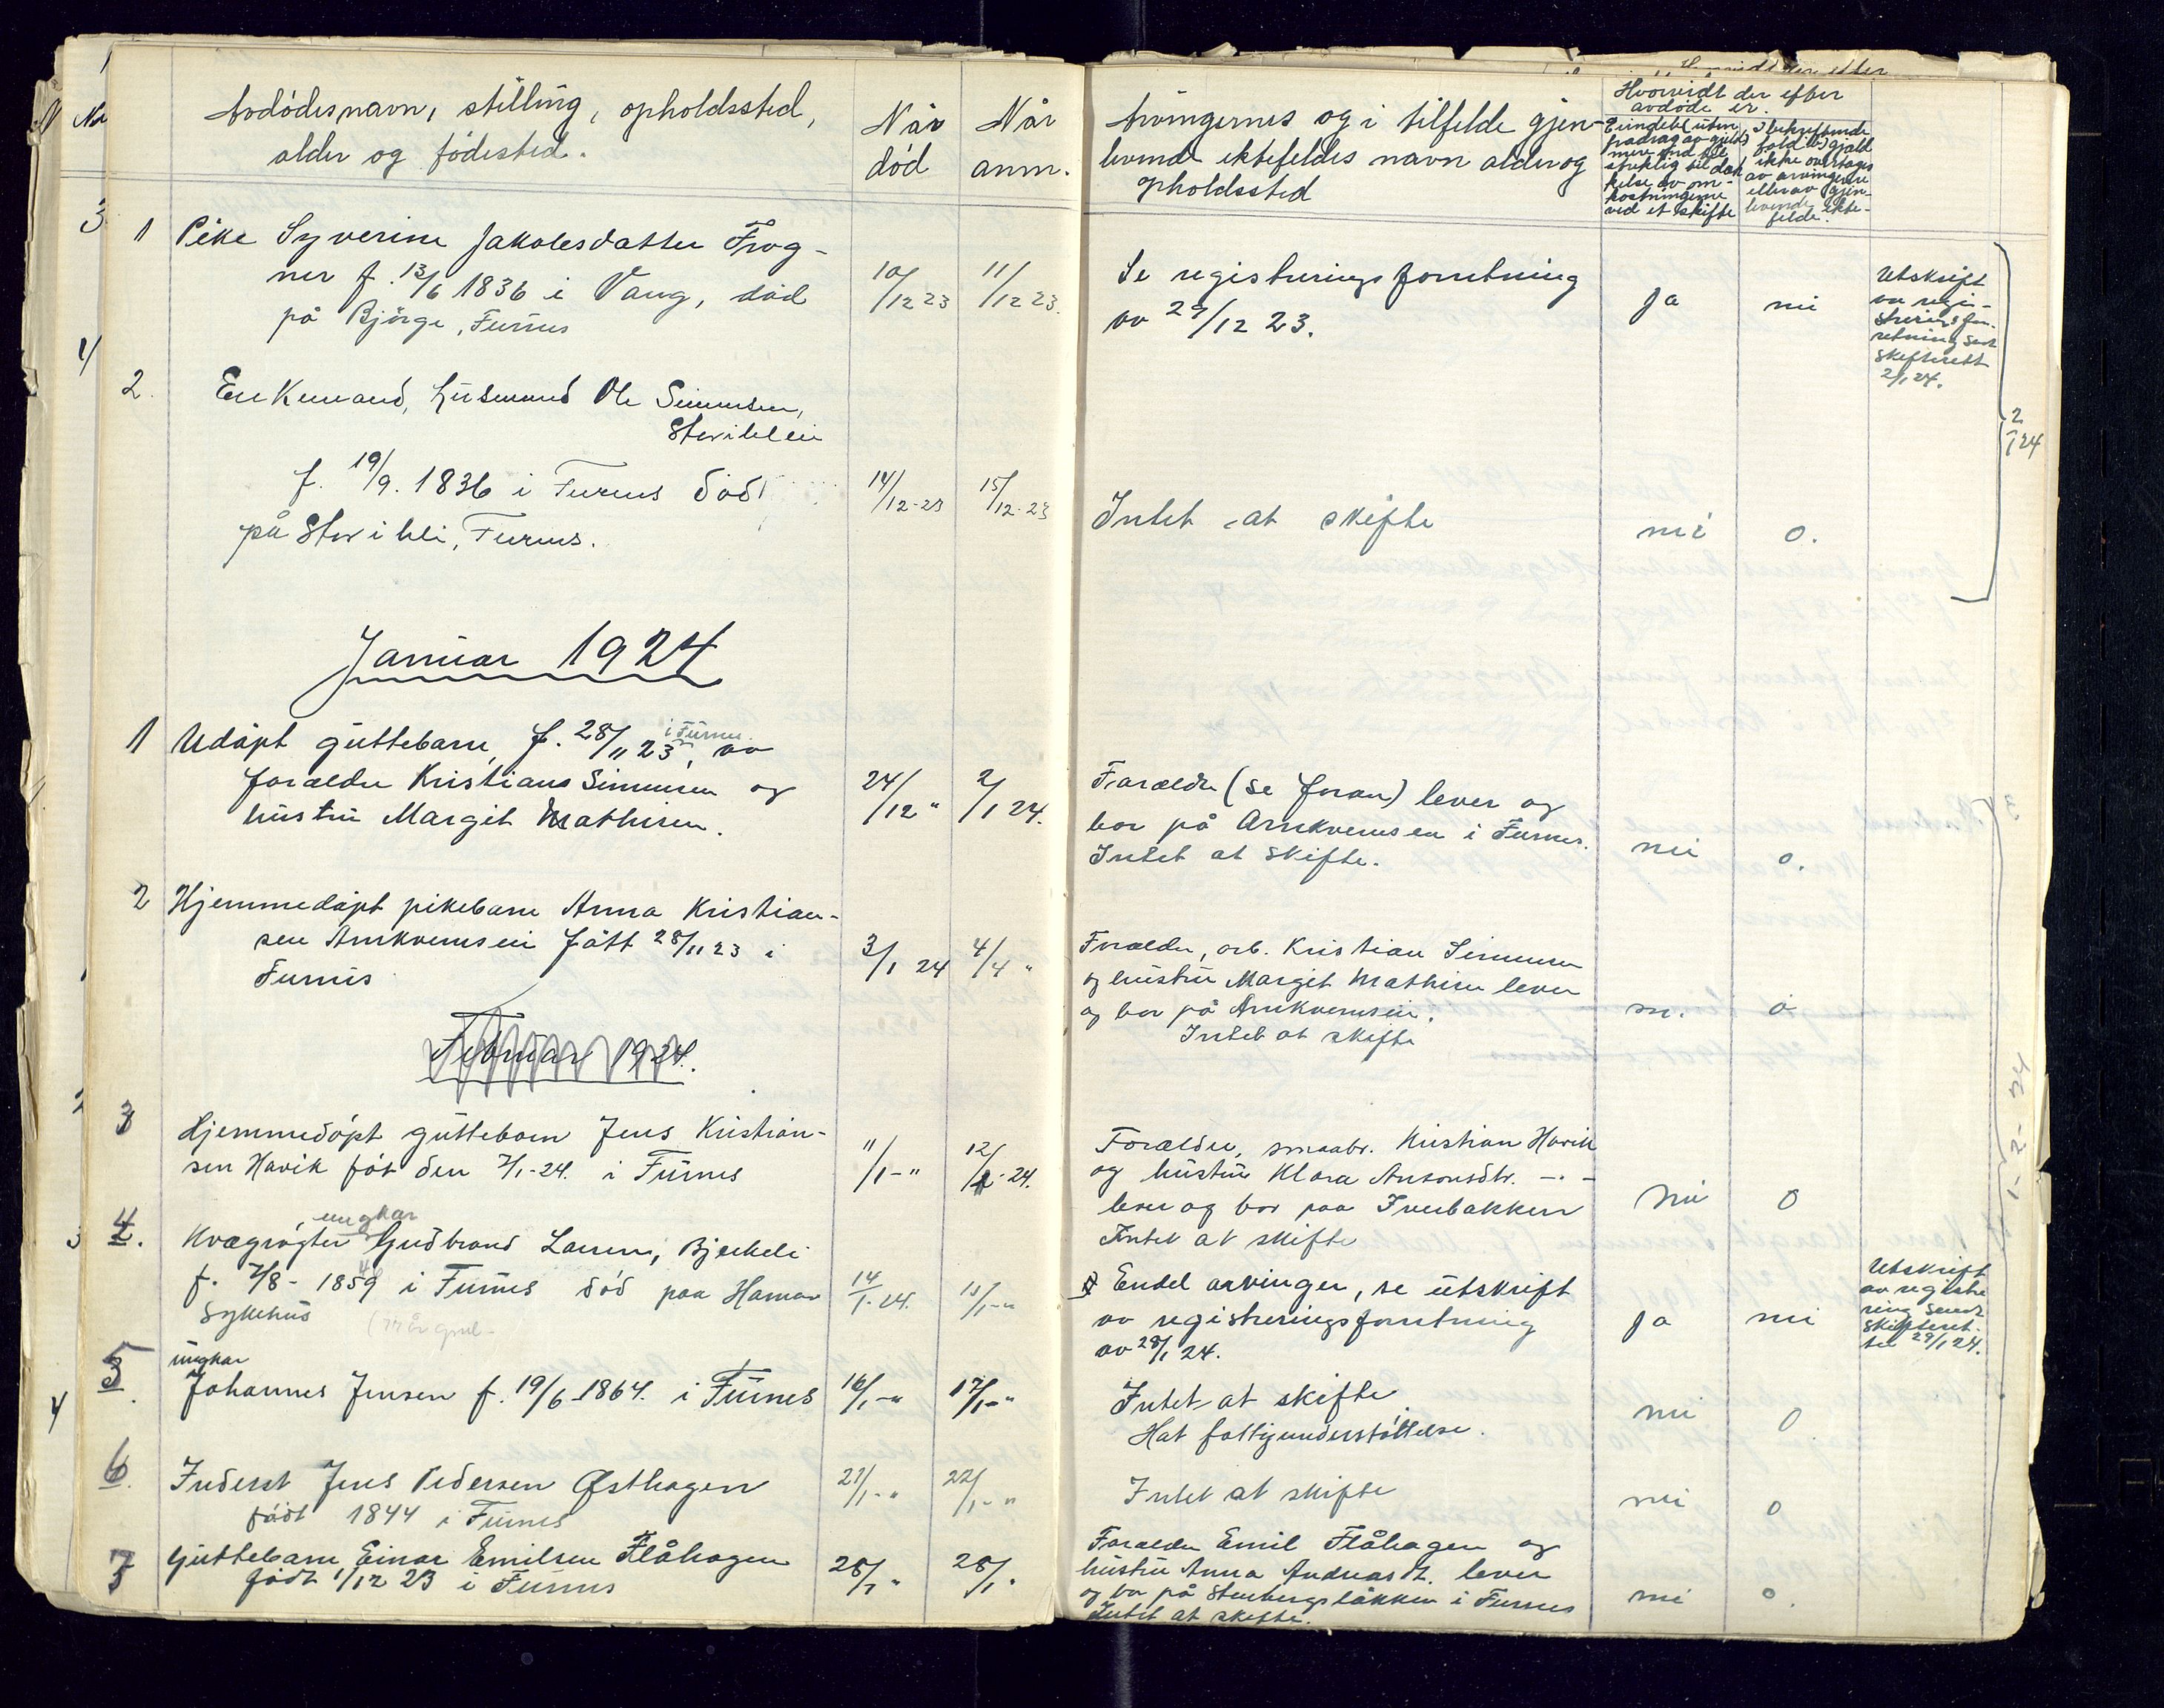 Avdödes navn, stilling, opholdssted,
alder og födested.
Når
död
Når
anm.
Arvingernes og i tilfelde gjen-
levende ektefeldes navn alder og
opholdssted
Hvorvidt der efter
avdöde er.
Eiendele uten
fradrag av gjeld
mere end til-
strekelig til dæk-
kelse av om-
kostningerne
ved et skifte
I bekreftende
fald og gjæld
ikke overtages
av arvingerne
eller av gjen-
levende ekte-
felde.
1 Pike Syverine Jakobsdatter Frog-
ner f. 13/6 1836 i Vang, död
på Björge, Furnes
10/12 23
11/12 23.
Se registreringsforretning
av 29/12 23.
Ja
nei
Utskrift
av regi-
strerings for-
retning sent
skifterett
2/1 24.
2/1 24
2. Enkemand, husmand Ole Simensen,
Stovilleie
f. 19/9. 1836 i Furnes död
på Stovilleie, Furnes.
14/12-23
15/12-23
Intet at skifte
nei
0.
Januar 1924
1 Udöpt guttebarn, f. 28/11 23, av
i Furnes.
forældre Kristians Simensen og
hustru Margit Mathisen.
24/12 "
2/1 24.
Forældre (se foran) lever og
bor på Arnkvernseie i Furnes.
Intet at skifte.
nei
0.
2 Hjemmedöpt pikebarn Anna Kristian-
sen Arnkvernseie födt 28/11 23 i
Furnes
3/1 24
4/4 "
Forældre, arb. Kristian Simensen
og hustru Margit Mathisen lever
og bor på Arnkvernseie.
Intet at skifte
nei.
0
Februar 1924.
3 Hjemmedöpt guttebarn Jens Kristian-
sen Havik föt den 7/1-24. i Furnes
11/1-"
12/1-24.
Forældre, smaabr. Kristian Havik
og hustru Klara Antonsdtr.
lever og bor paa Iverbakken
Intet at skifte
Nei
0
4. Kvægrögter Gudbrand Larsen, Bjerkeli
ungkar
f. 7/8-1859 i Furnes död paa Hamar
Sykehus
14/1-24.
15/1-"
Endel arvinger, se utskrift
av registreringsforretning
av 28/1 24.
Ja
nei
Utskrift
av registre
ring sendt
Skifteret-
ten 29/1 24.
1-2-24
5. ungkar
Johannes Jensen f. 19/6-1864. i Furnes
16/1-"
17/1-"
Intet at skifte.
Hat fattigunderstöttelse.
nei
0
6. Inderst Jens Pedersen Østhagen
födt 1844 i Furnes
21/1-"
22/1-"
Intet at skifte
nei
0
7 Guttebarn Einar Emilsen Flåhagen
födt 1/12 23 i Furnes
28/1 "
28/1 "
Forældre Emil Flåhagen og
hustru Anna Andreasdt. lever
og bor på Stenbergslökken i Furnes
Intet at skifte.
nei
0.